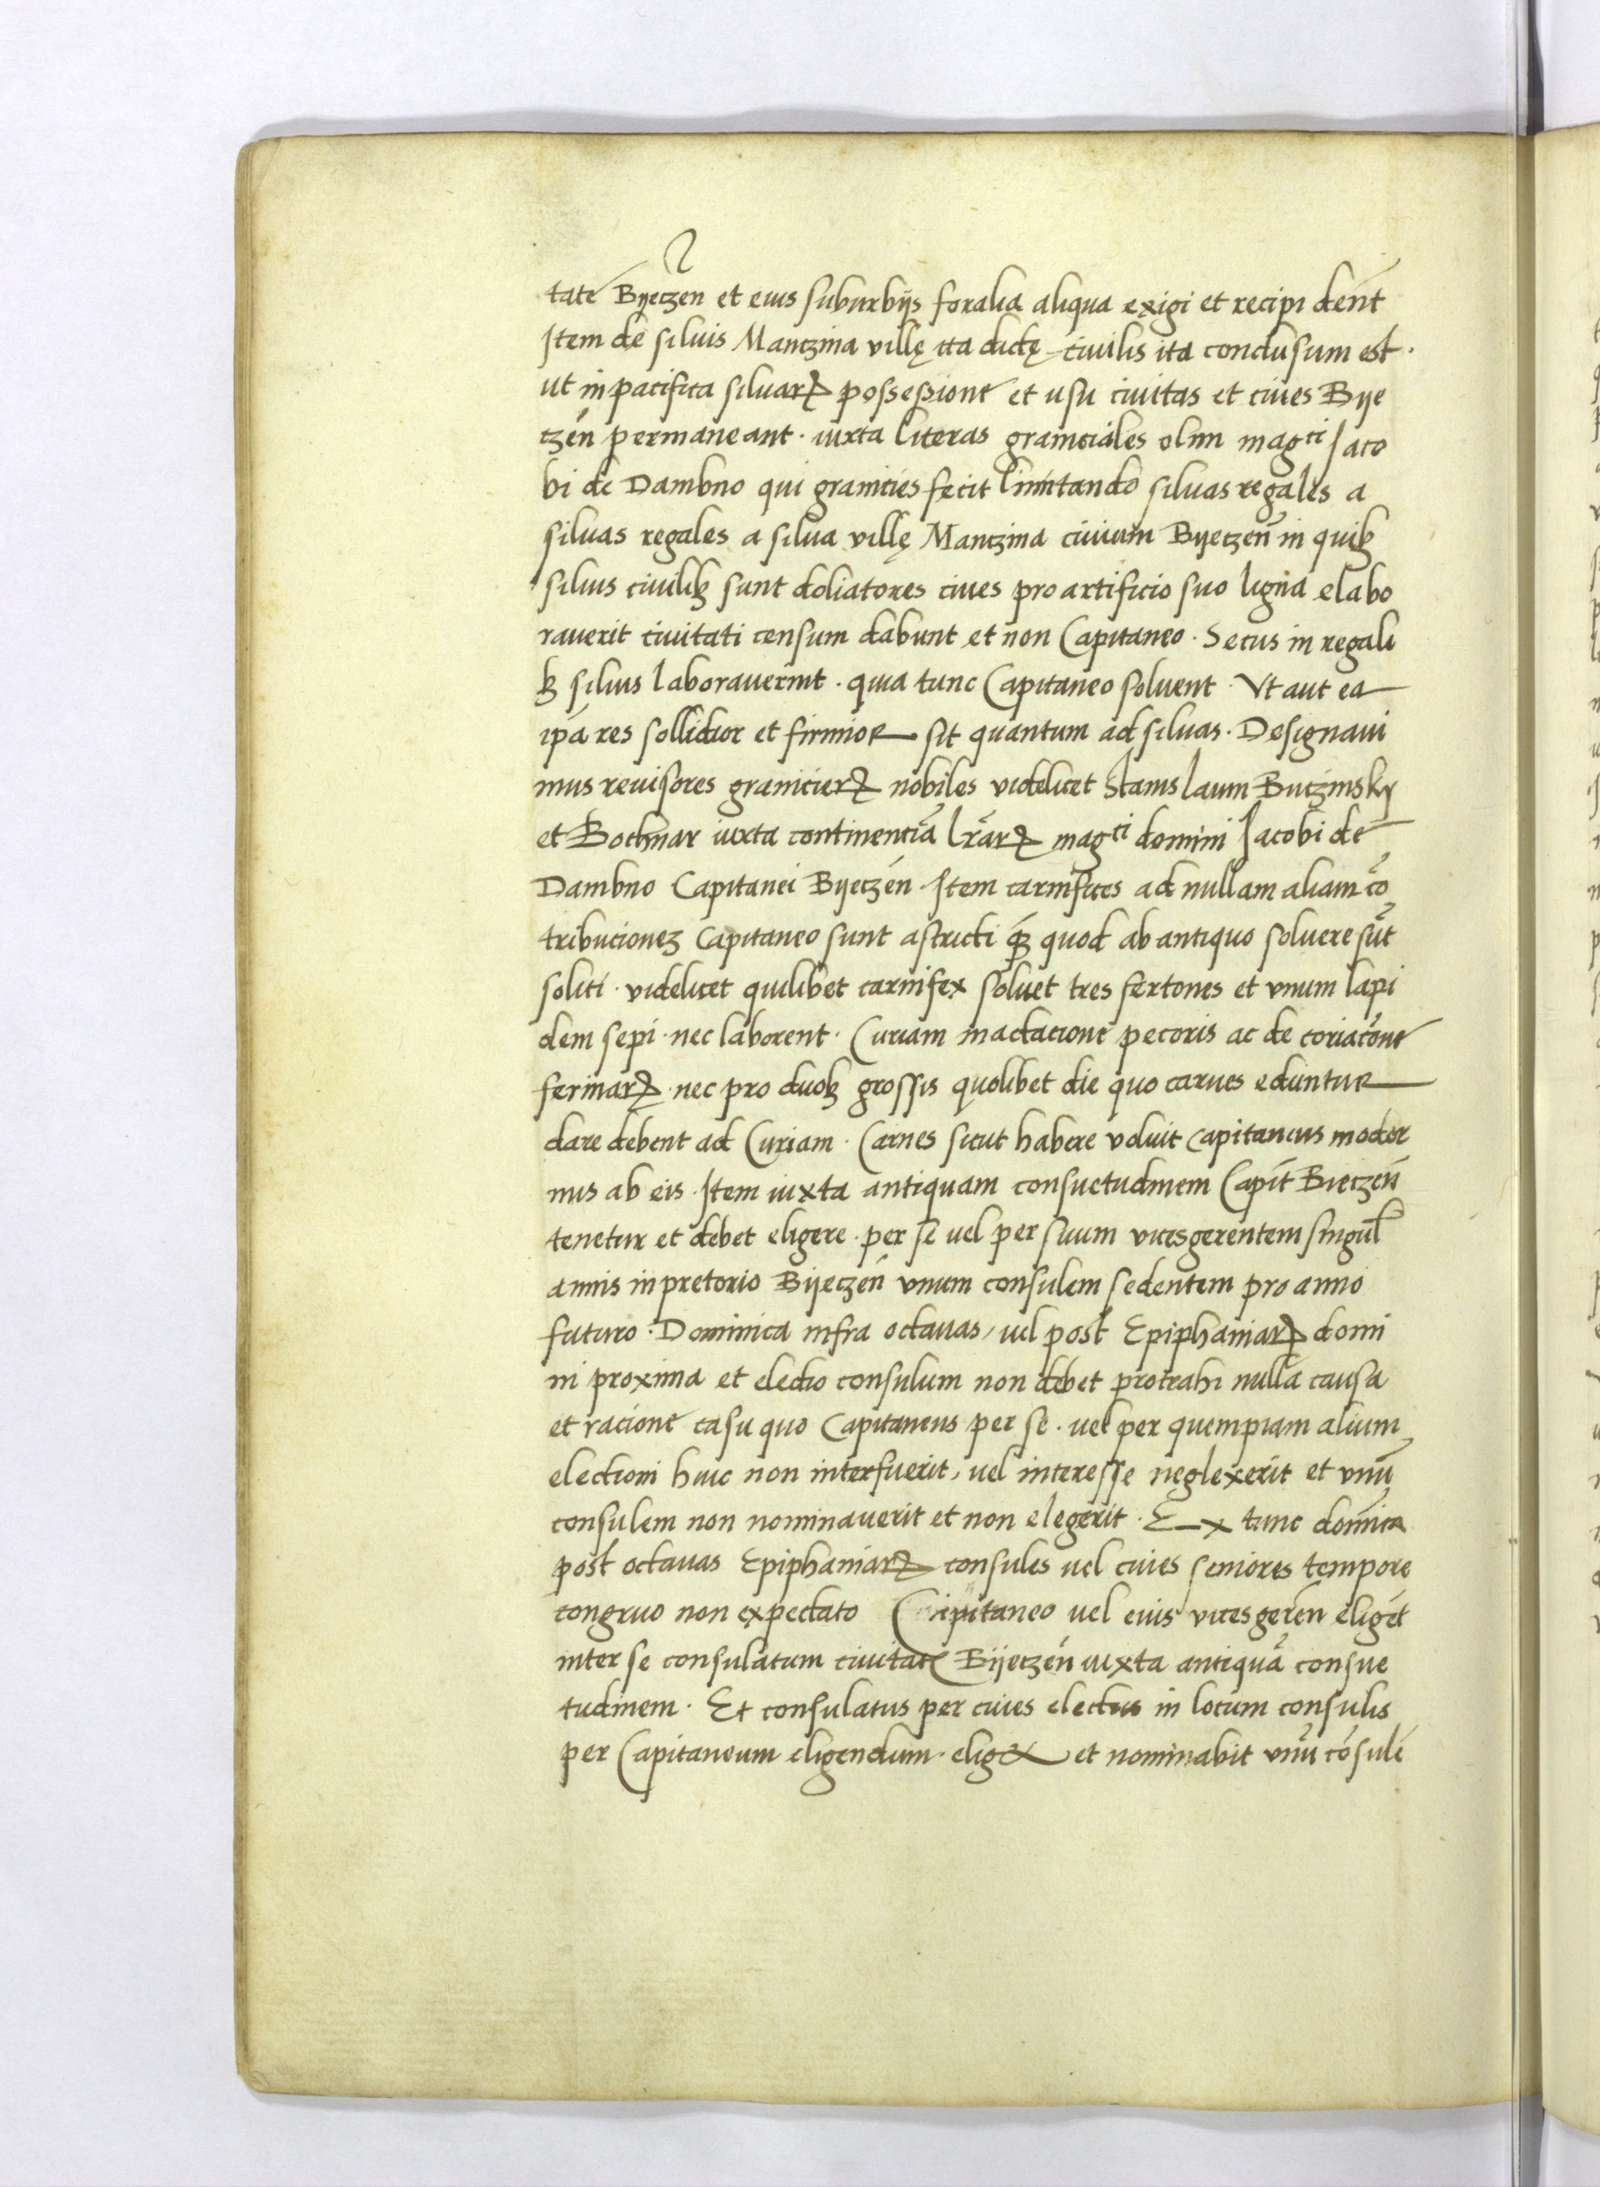 tatē Byeczen et eius suburbijs foralia aliqua exigi et recipi debēt
Item de siluis Manczina villę ita dictę civilis ita conclusum est.
ut in pacifica siluarꝝ possessione et usu civitas et cives Bye
czēn permaneant. iuxta literas graniciales olim magci Iaco
bi de Dambno qui granicies fecit limitando siluas regales a
siluas regales a silua villę Manczina civium Byeczen̄ in quibꝫ
siluis civilibꝫ sunt doliatores cives pro artificio suo ligna elabo
raverit civitati censum dabunt et non Capitaneo. Secus in regali
bꝫ siluis laboraverint. quia tunc Capitaneo soluent. Vt aut ea
ip̄a res sollidior et firmior sit quantum ad siluas. Designavi
mus revisores granicierꝝ nobiles videlicet Stanislaum Buczinsky
et Bochnar iuxta continenciā lr̄arꝝ magci domini Iacobi de
Dambno Capitanei Byeczēn. Item carnifices ad nullam aliam cō
tribucionem Capitaneo sunt astricti qꝫ quod ab antiquo soluere sūt
soliti. videlicet quilibet carnifex soluet tres fertones et vnum lapi
dem sepi. nec laborent. Curiam mactacione pecoris ac de coriacōne
ferinarꝝ. nec pro duobꝫ grossis quolibet die quo carnes eduntur
dare debent ad Curiam. Carnes sicut habere voluit Capitaneus moder
nus ab eis. Item iuxta antiquam consuetudinem Capit̄ Bieczen̄
tenetur et debet eligere. per se vel per suum vicesgerentem singul̄
annis in pretorio Byeczen̄ vnum consulem sedentem pro anno
futuro. Dominica infra octavas, vel post Epiphaniarꝝ domi
ni proxima et electio consulum non debet protrahi nulla causa
et racione casu quo Capitaneus per se. vel per quempiam alium
electioni huic non interfuerit, vel interesse neglexerit et vnū
consulem non nominaverit et non elegerit. Ex tunc domīca
post octavas Epiphaniarꝝ consules vel cives seniores tempore
congruo non expectato Capitaneo vel eius vicesgerēn eligēt
inter se consulatum civitatꝭ Bijeczēn iuxta antiquā consue
tudinem. Et consulatus per cives electus in locum consulis
per Capitaneum eligendum. eliget et nominabit vnū cōsulē